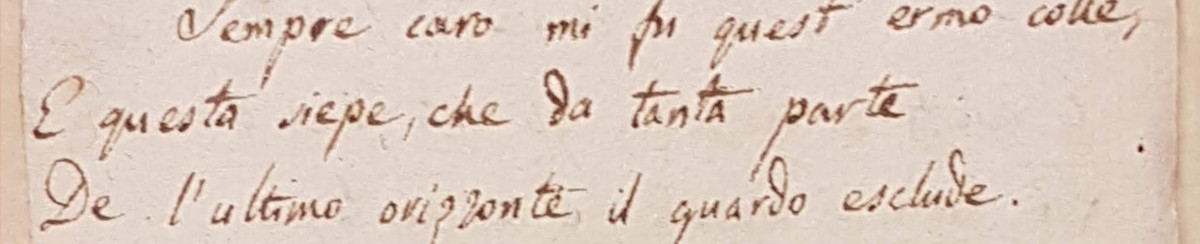 Sempre caro mi fu quest ermo colle,
E questa siepe, che da tanta parte
De l'ultimo orizzonte il guardo esclude.